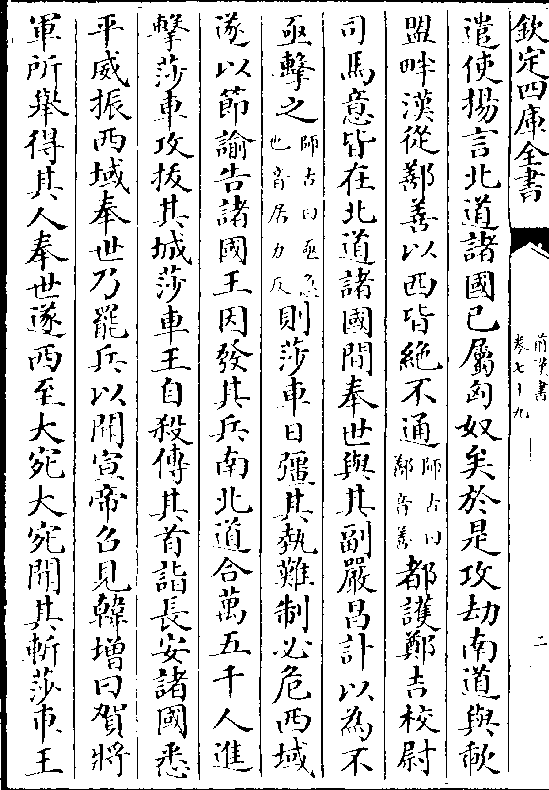 欽定四庫全書
前漢書
卷七十九
二
遣使揚言北道諸國已屬匈奴矣於是攻劫南道與歃
盟畔漢從鄯善以西皆絕不通師古曰鄯音善都護鄭吉校尉
司馬意皆在北道諸國間奉世與其副嚴昌計以為不
亟擊之師古曰亟急也音居力反則莎車日彊其埶難制必危西域
遂以節諭告諸國王因發其兵南北道合萬五千人進
擊莎車攻拔其城莎車王自殺傳其首詣長安諸國悉
平威振西域奉世乃罷兵以聞宣帝召見韓增曰賀將
軍所舉得其人奉世遂西至大宛大宛聞其斬莎車王